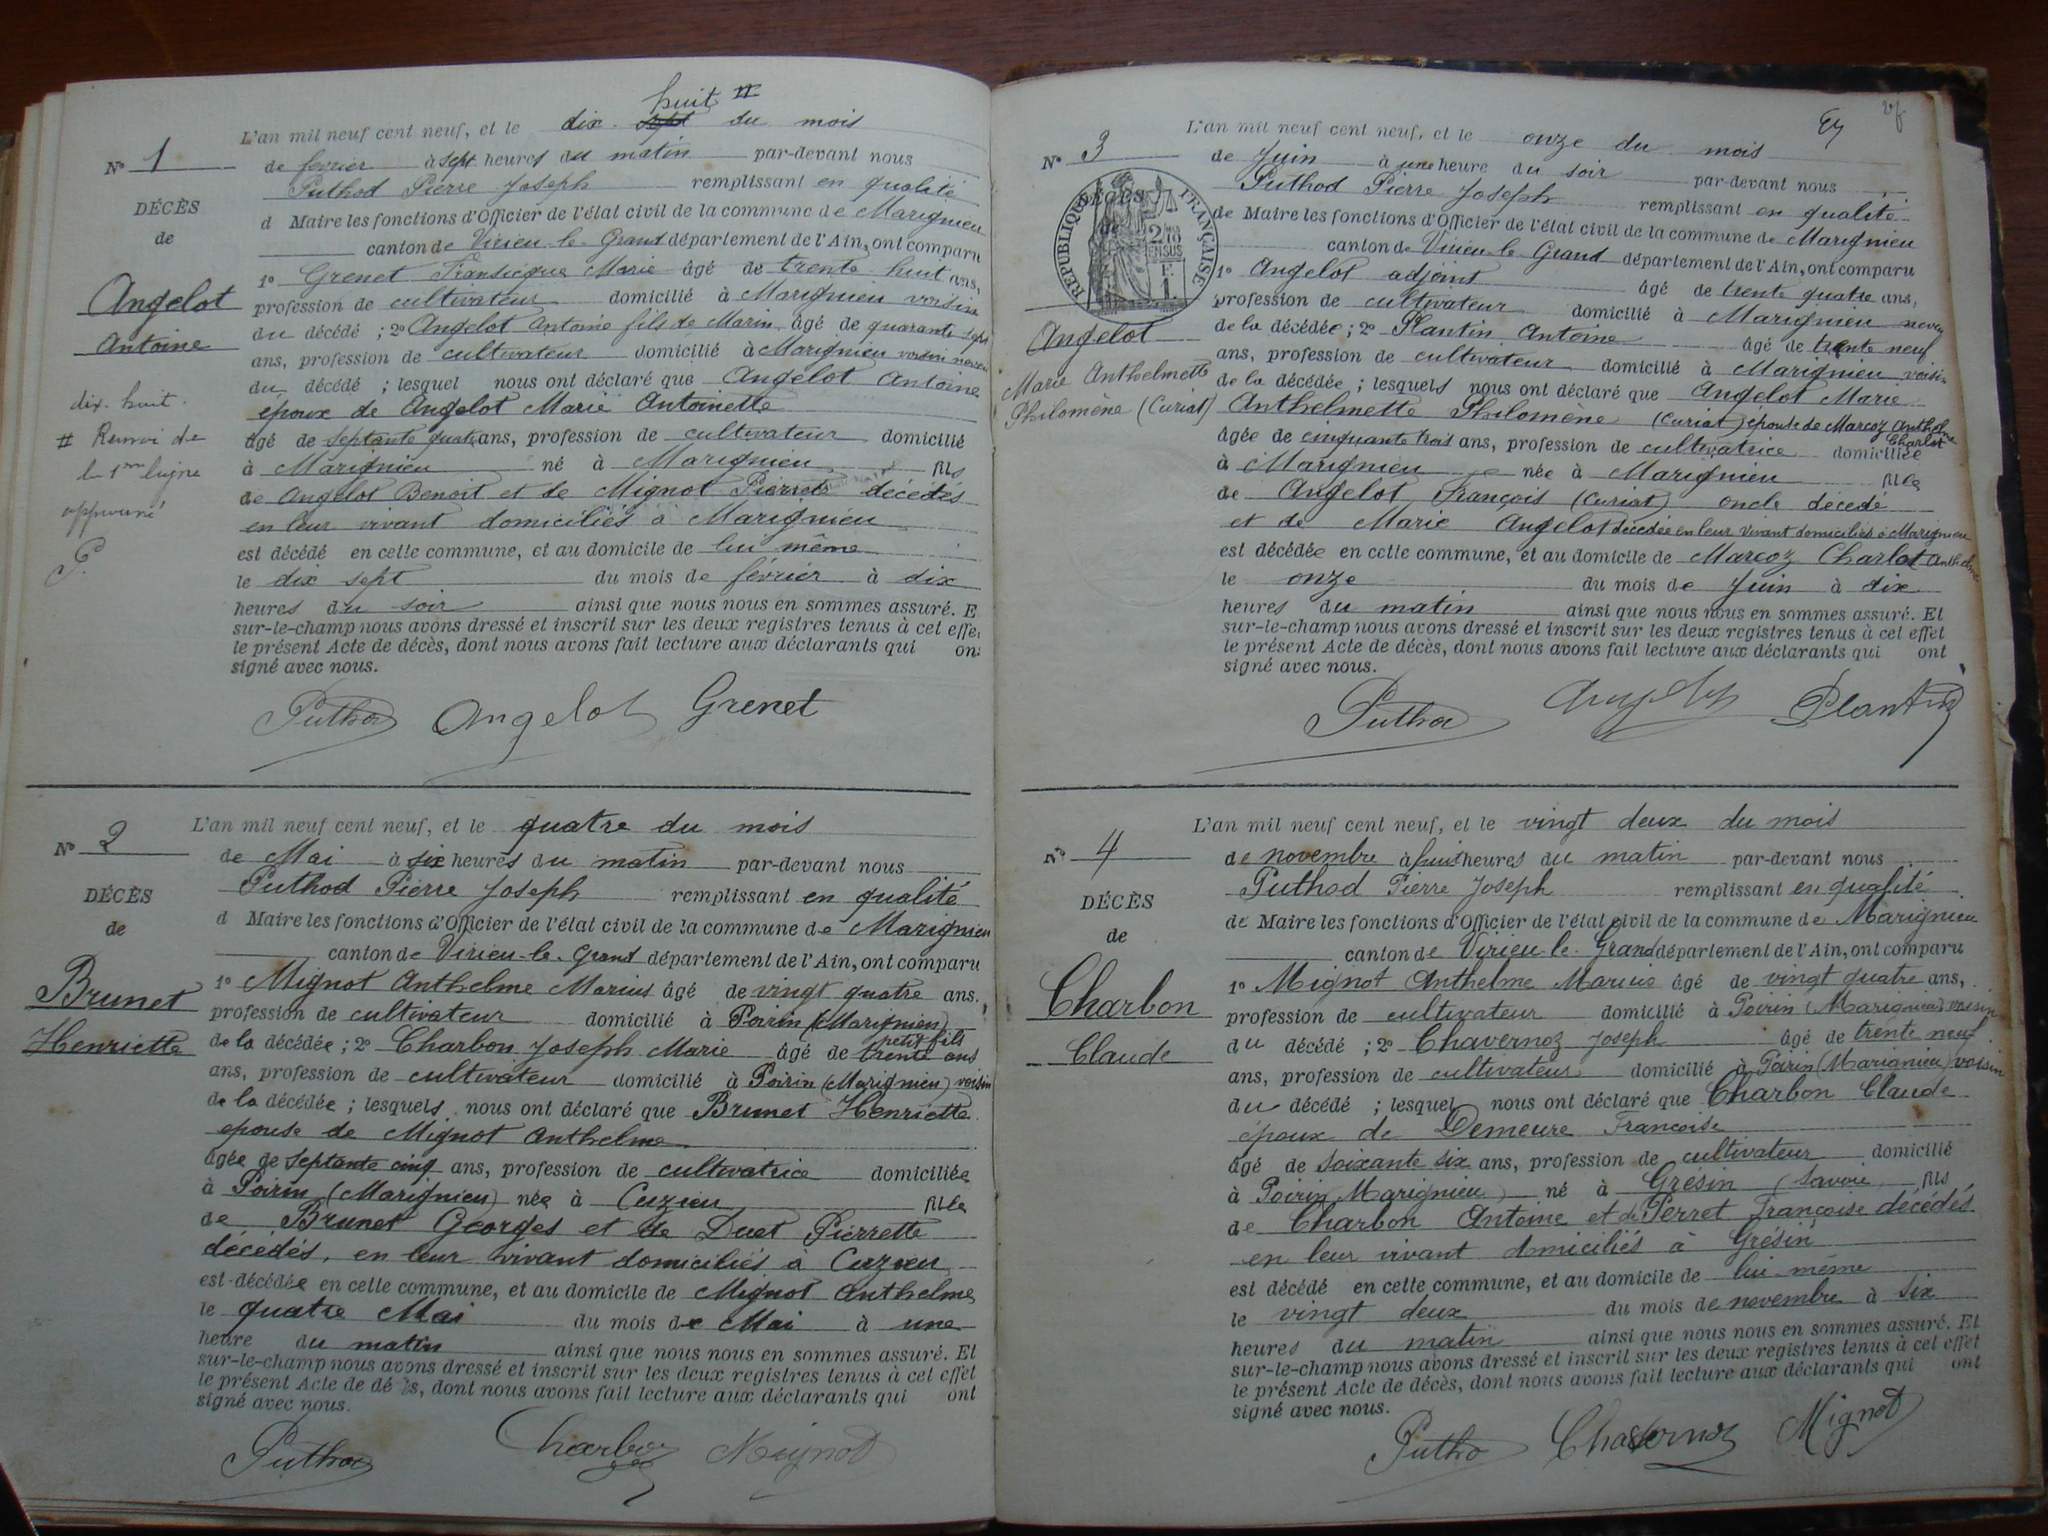 huit #
L'an mil neuf cent neuf, et le dix sept du mois
N° 1
de février à sept heures du matin par-devant nous
Puthod Pierre Joseph remplissant en qualité
DÉCÈS
de
d Maire les fonctions d'Officier de l'état civil de la commune de Marignieu
canton de Virieu-le-Grand département de l'Ain, ont comparu
1° Grenet Marie âgé de trente huit ans,
Angelot
Antoine
profession de cultivateur domicilié à Marignieu voisin
du décédé ; 2° Angelot Antoine fils de Marin âgé de quarante sept
ans, profession de cultivateur domicilié à Marignieu voisin neveu
du décédé ; lesquel nous ont déclaré que Angelot Antoine
époux de Angelot Marie Antoinette
dix-huit.
# Renvoi de
la 1re ligne
approuvé
P.
âgé de septante quatre ans, profession de cultivateur domicilié
à Marignieu né à Marignieu fils
de Angelot Benoit et de Mignot Pierrette décédés
en leur vivant domiciliés à Marignieu
est décédé en cette commune, et au domicile de lui même
le dix sept du mois de février à dix
heures du soir ainsi que nous nous en sommes assuré. E
sur-le-champ nous avons dressé et inscrit sur les deux registres tenus à cet effe
le présent Acte de décès, dont nous avons fait lecture aux déclarants qui on
signé avec nous.
Puthod Angelot Grenet
L'an mil neuf cent neuf, et le quatre du mois
N° 2
de Mai à six heures du matin par-devant nous
Puthod Pierre Joseph remplissant en qualité
DÉCÈS
de
d Maire les fonctions d'Officier de l'état civil de la commune de Marignieu
canton de Virieu-le-Grand département de l'Ain, ont comparu
Brunet
Henriette
1° Mignot Anthelme Marius âgé de vingt quatre ans,
profession de cultivateur domicilié à Poirin (Marignieu)
petit fils
de la décédée ; 2° Charbon Joseph Marie âgé de trente ans
ans, profession de cultivateur domicilié à Poirin (Marignieu) voisin
de la décédée ; lesquels nous ont déclaré que Brunet Henriette
épouse de Mignot Anthelme
âgée de septante cinq ans, profession de cultivatrice domiciliée
à Poirin (Marignieu) née à Cuzieu fille
de Brunet Georges et de Duet Pierrette
décédés, en leur vivant domiciliés à Cuzieu
est décédée en cette commune, et au domicile de Mignot Anthelme
le quatre Mai du mois de Mai à une
heure du matin ainsi que nous nous en sommes assuré. Et
sur-le-champ nous avons dressé et inscrit sur les deux registres tenus à cet effet
le présent Acte de dé s, dont nous avons fait lecture aux déclarants qui ont
signé avec nous.
Puthod Charbon Mignot
L'an mil neuf cent neuf, et le onze du mois
N° 3
de Juin à une heure du soir par-devant nous
Puthod Pierre Joseph remplissant en qualité
DÉCÈS
de
RÉPUBLIQUE FRANÇAISE
2/10 EN SUS
de Maire les fonctions d'Officier de l'état civil de la commune de Marignieu
canton de Virieu-le-Grand département de l'Ain, ont comparu
1° Angelot adjoint âgé de trente quatre ans,
profession de cultivateur domicilié à Marignieu neveu
Angelot
Marie Anthelmette
Philomène (Curiat)
de la décédée ; 2° Plantin Antoine âgé de trente neuf
ans, profession de cultivateur domicilié à Marignieu voisin
de la décédée ; lesquels nous ont déclaré que Angelot Marie
Anthelmette Philomène (Curiat) épouse de Marcoz Anthelme
Charlot
âgée de cinquante trois ans, profession de cultivatrice domiciliée
à Marignieu née à Marignieu fille
de Angelot François (Curiat) oncle décédé
et de Marie Angelot décédée en leur vivant domiciliés à Marignieu
est décédée en cette commune, et au domicile de Marcoz Charlot Anthelme
le onze du mois de Juin à dix
heures du matin ainsi que nous nous en sommes assuré. Et
sur-le-champ nous avons dressé et inscrit sur les deux registres tenus à cet effet
le présent Acte de décès, dont nous avons fait lecture aux déclarants qui ont
signé avec nous.
Puthod Angelot Plantin
L'an mil neuf cent neuf, et le vingt deux du mois
N° 4
de novembre à huit heures du matin par-devant nous
Puthod Pierre Joseph remplissant en qualité
DÉCÈS
de
de Maire les fonctions d'Officier de l'état civil de la commune de Marignieu
canton de Virieu-le-Grand département de l'Ain, ont comparu
Charbon
Claude
1° Mignot Anthelme Marius âgé de vingt quatre ans,
profession de cultivateur domicilié à Poirin (Marignieu) voisin
du décédé ; 2° Chavernoz Joseph âgé de trente neuf
ans, profession de cultivateur domicilié à Poirin (Marignieu) voisin
du décédé ; lesquel nous ont déclaré que Charbon Claude
époux de Demeure Françoise
âgé de soixante six ans, profession de cultivateur domicilié
à Poirin (Marignieu) né à Grésin (Savoie) fils
de Charbon Antoine et de Perret Françoise décédés
en leur vivant domiciliés à Grésin
est décédé en cette commune, et au domicile de lui-même
le vingt deux du mois de novembre à six
heures du matin ainsi que nous nous en sommes assuré. Et
sur-le-champ nous avons dressé et inscrit sur les deux registres tenus à cet effet
le présent Acte de décès, dont nous avons fait lecture aux déclarants qui ont
signé avec nous.
Puthod Chavernoz Mignot